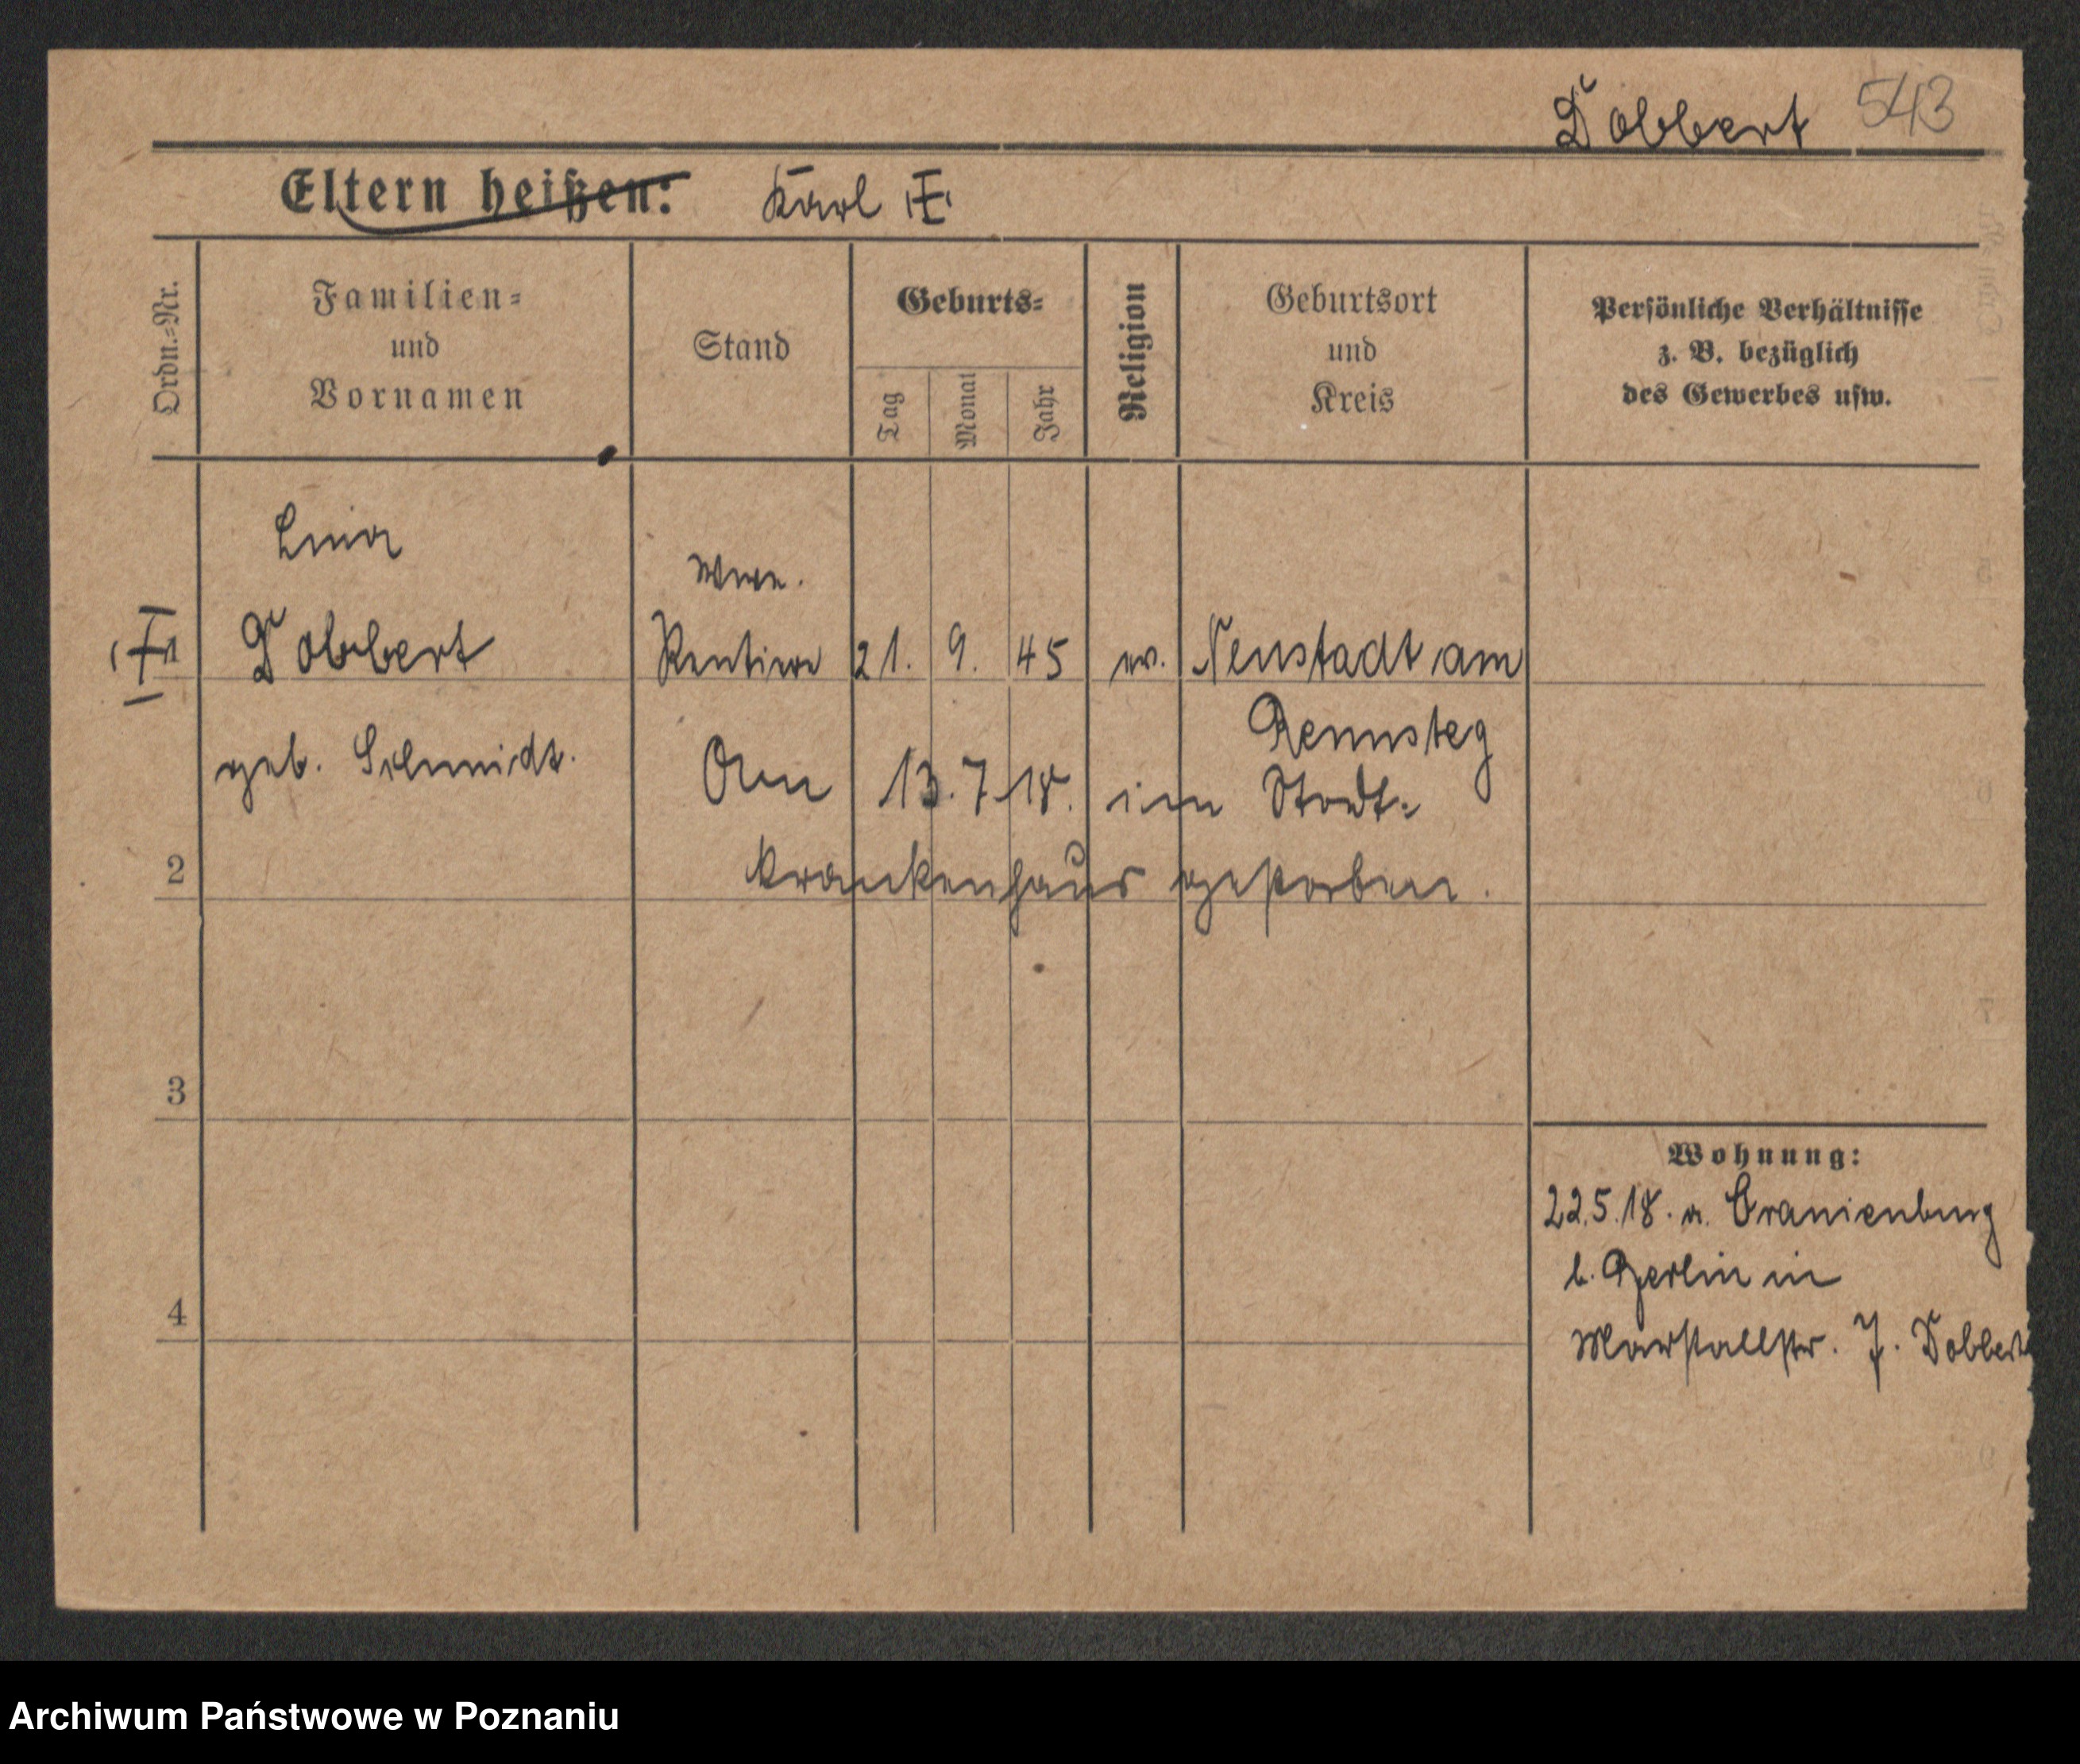 Dobbert 543
Eltern heißen: Karl
Ordn.-Nr.
Familien-
und
Vornamen
Stand
Geburts-
Tag
Monat
Jahr
Religion
Geburtsort
und
Kreis
Persönliche Verhältnisse
z. B. bezüglich
des Gewerbes usw.
Lina
Wwe.
1 Dobbert Rentiere 21. 9. 45 ev. Neustadt am
Rennsteg
geb. Schmidt.
Am 13. 7. 18. im Stadt-
2 krankenhaus gestorben.
3
4
Wohnung:
22.5.18. n. Oranienburg
b. Berlin in
Marstallstr. 7. Dobbert
Archiwum Państwowe w Poznaniu